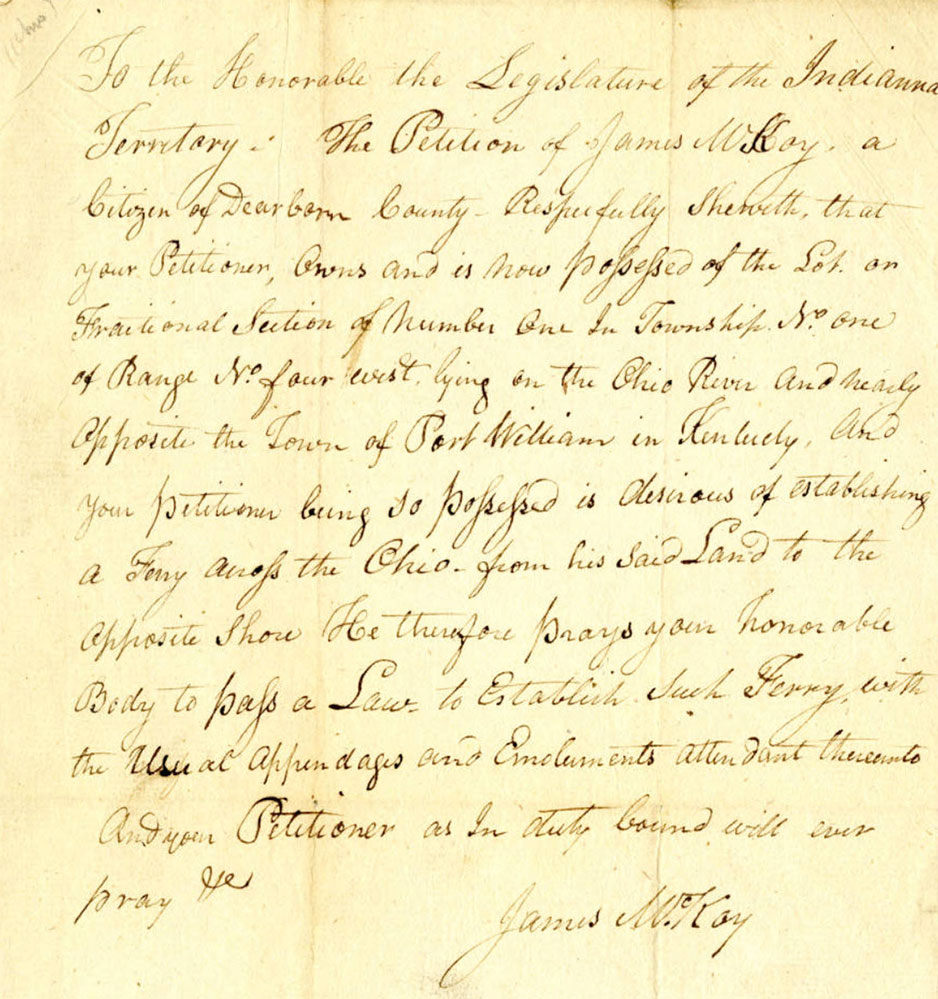 To the Honorable the Legislature of the Indianna
Territory. The Petition of James McKoy. a
Citizen of Dearborn County - Respecfully Sheweth, that
your Petitioner, Owns and is now possessed of the Lot. or
Fractional Section of Number One In Township. No. one
of Range No. four west. lying on the Ohio River and nearly
Opposite the Town of Port William in Kentucky, And
your petitioner being so possessed is desirous of establishing
a Ferry across the Ohio - from his said Land to the
opposite Shore He therefore prays your honorable
Body to pass a Law - to Establish Such Ferry, with
the Usual Appendages and Emoluments attendant thereunto
And your Petitioner as In duty bound will ever
pray &c
James McKoy